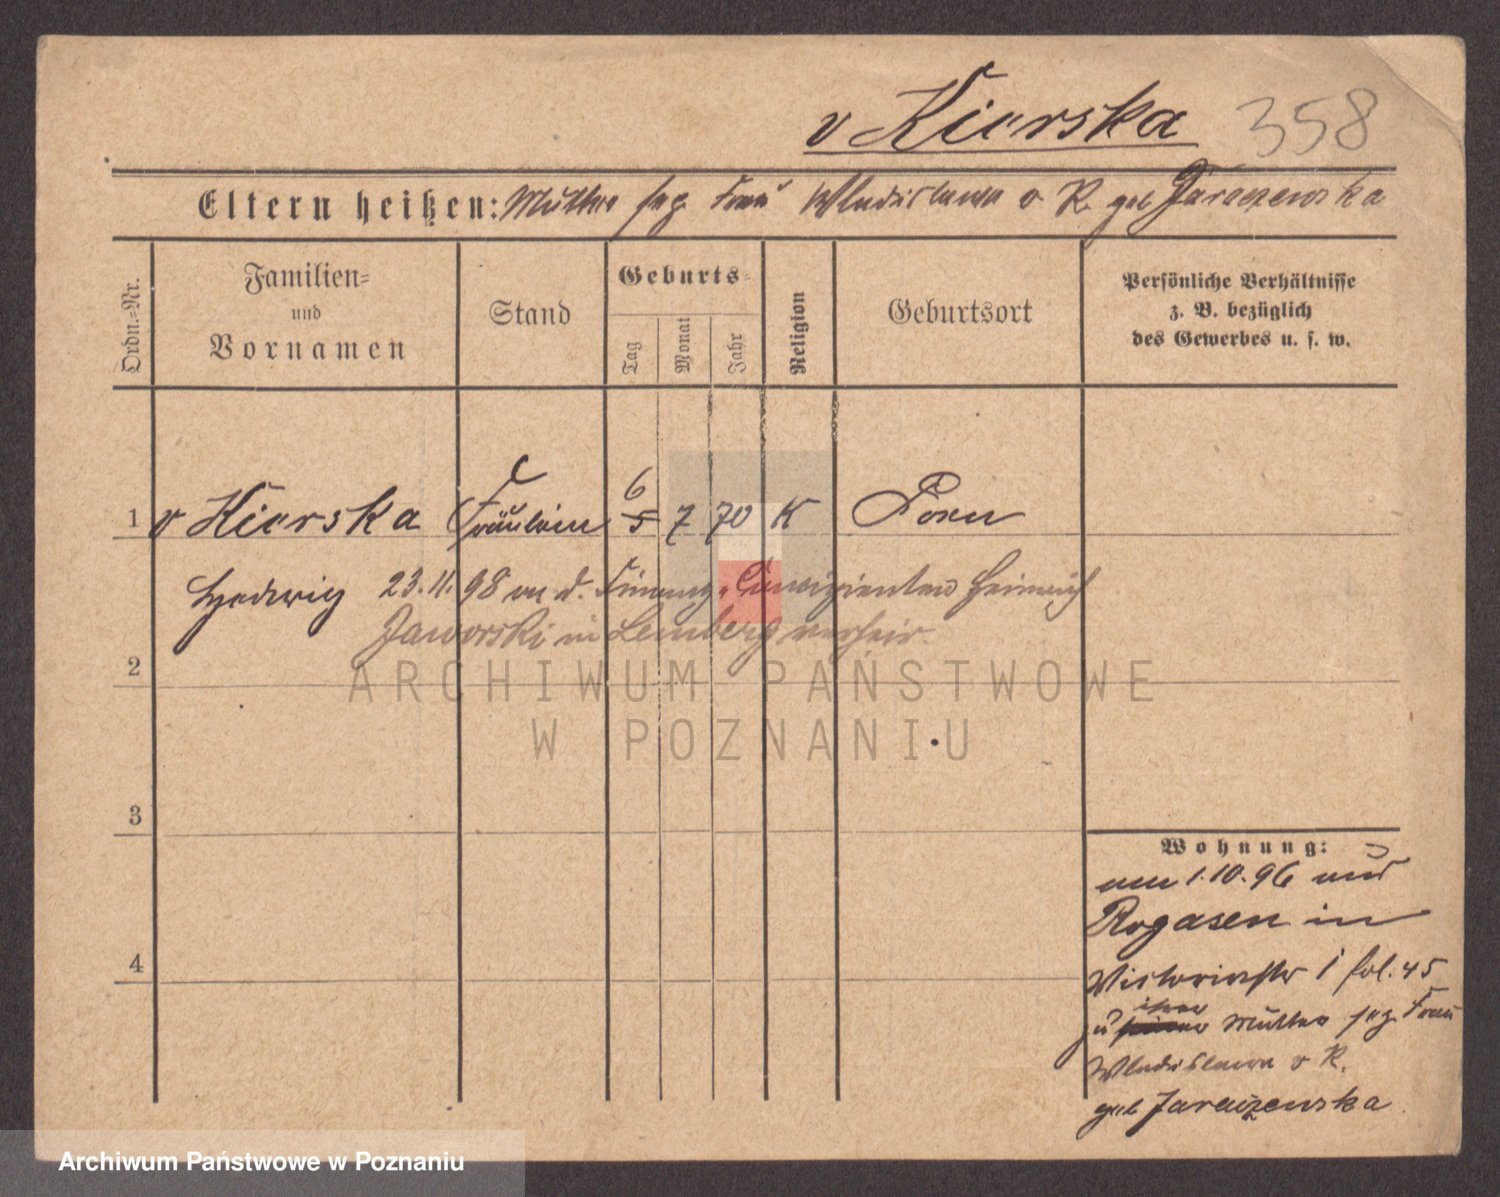 v Kierska 358
Eltern heißen: Mutter sep. Frau Wladislawa v K. geb Jaraczewska
Ordn.=Nr.
Familien=
und
Vornamen
Stand
Geburts=
Tag
Monat
Jahr
Religion
Geburtsort
Persönliche Verhältnisse
z. B. bezüglich
des Gewerbes u. s. w.
6
1 v Kierska Fräulein 5 7 70 K Posen
Hedwig 23.11.98 an d. Finanz= Heinrich
Jaworski in Lemberg verheir.
2
ARCHIWUM PAŃSTWOWE
W POZNANIU
3
4
Wohnung:
1.10.96 aus
Rogasen in
Victoriastr 1 fol. 45
ihrer
zu seiner Mutter sep. Frau
Wladislawa v K.
geb Jaraczewska
Archiwum Państwowe w Poznaniu